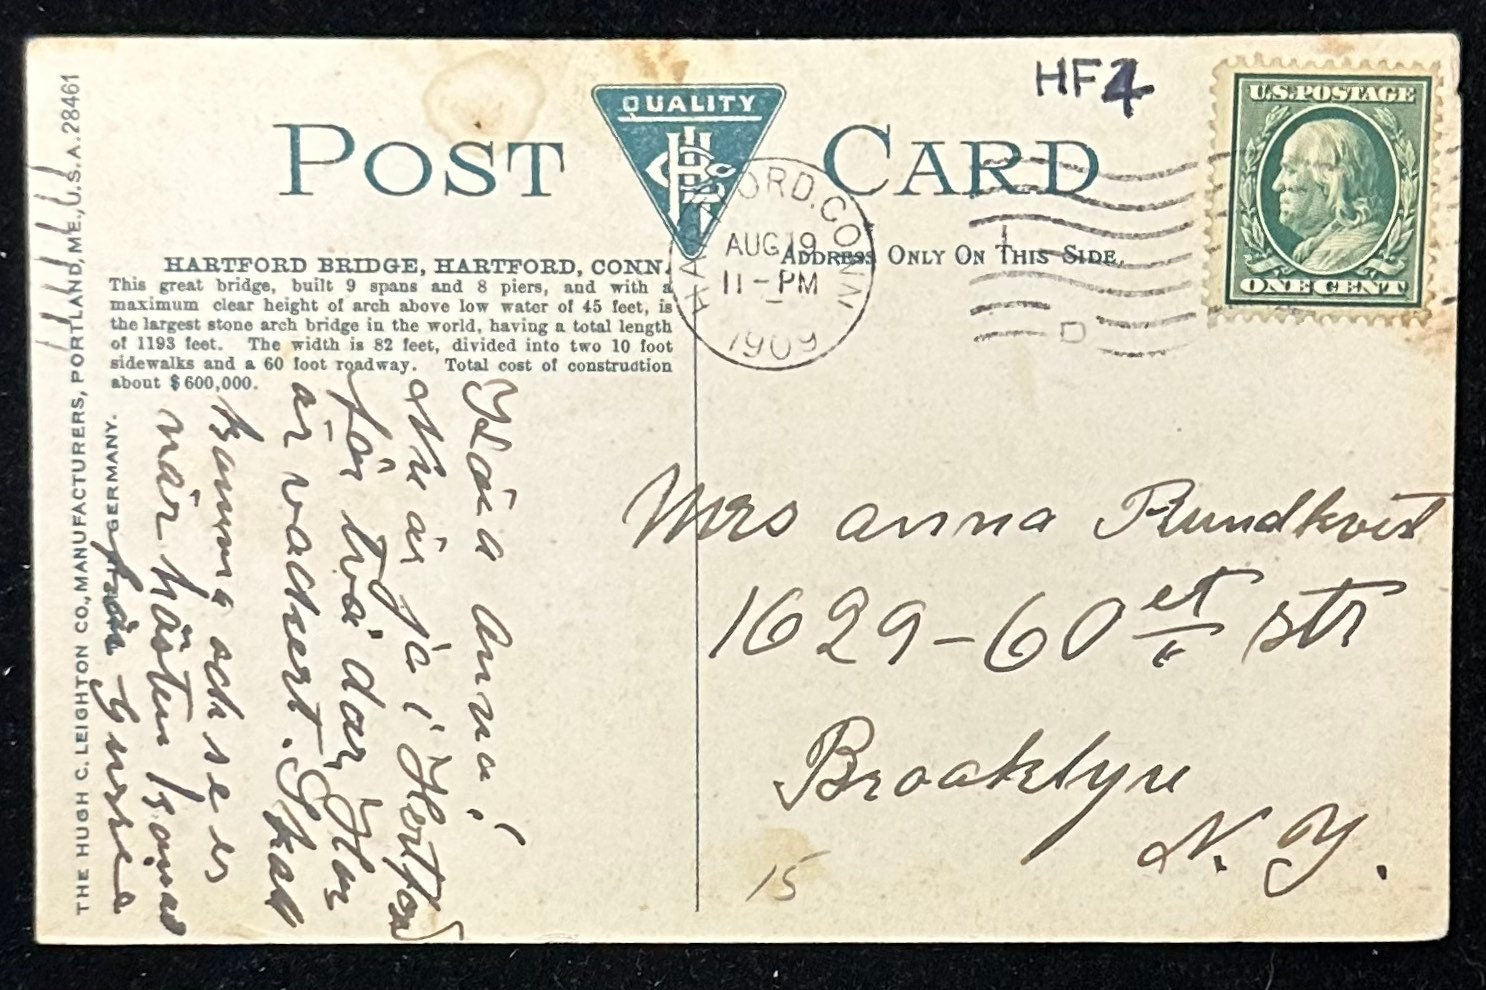 HF4
QUALITY
POST CARD
U.S. POSTAGE
ONE CENT
HARTFORD, CONN
AUG 19
11-PM
1909
D
ADDRESS ONLY ON THIS SIDE.
HARTFORD BRIDGE, HARTFORD, CONN.
This great bridge, built 9 spans and 8 piers, and with a
maximum clear height of arch above low water of 45 feet, is
the largest stone arch bridge in the world, having a total length
of 1193 feet. The width is 82 feet, divided into two 10 foot
sidewalks and a 60 foot roadway. Total cost of construction
about $600,000.
THE HUGH C. LEIGHTON CO., MANUFACTURERS, PORTLAND, ME., U.S.A. 28461
GERMANY.
Anna!
Nu är ja i Hertford
för två dar Har
är vackert. Skall
komma och se er
när hösten
från
Mrs anna Rundkvist
1629-60 et str
Brooklyn
N. Y.
15